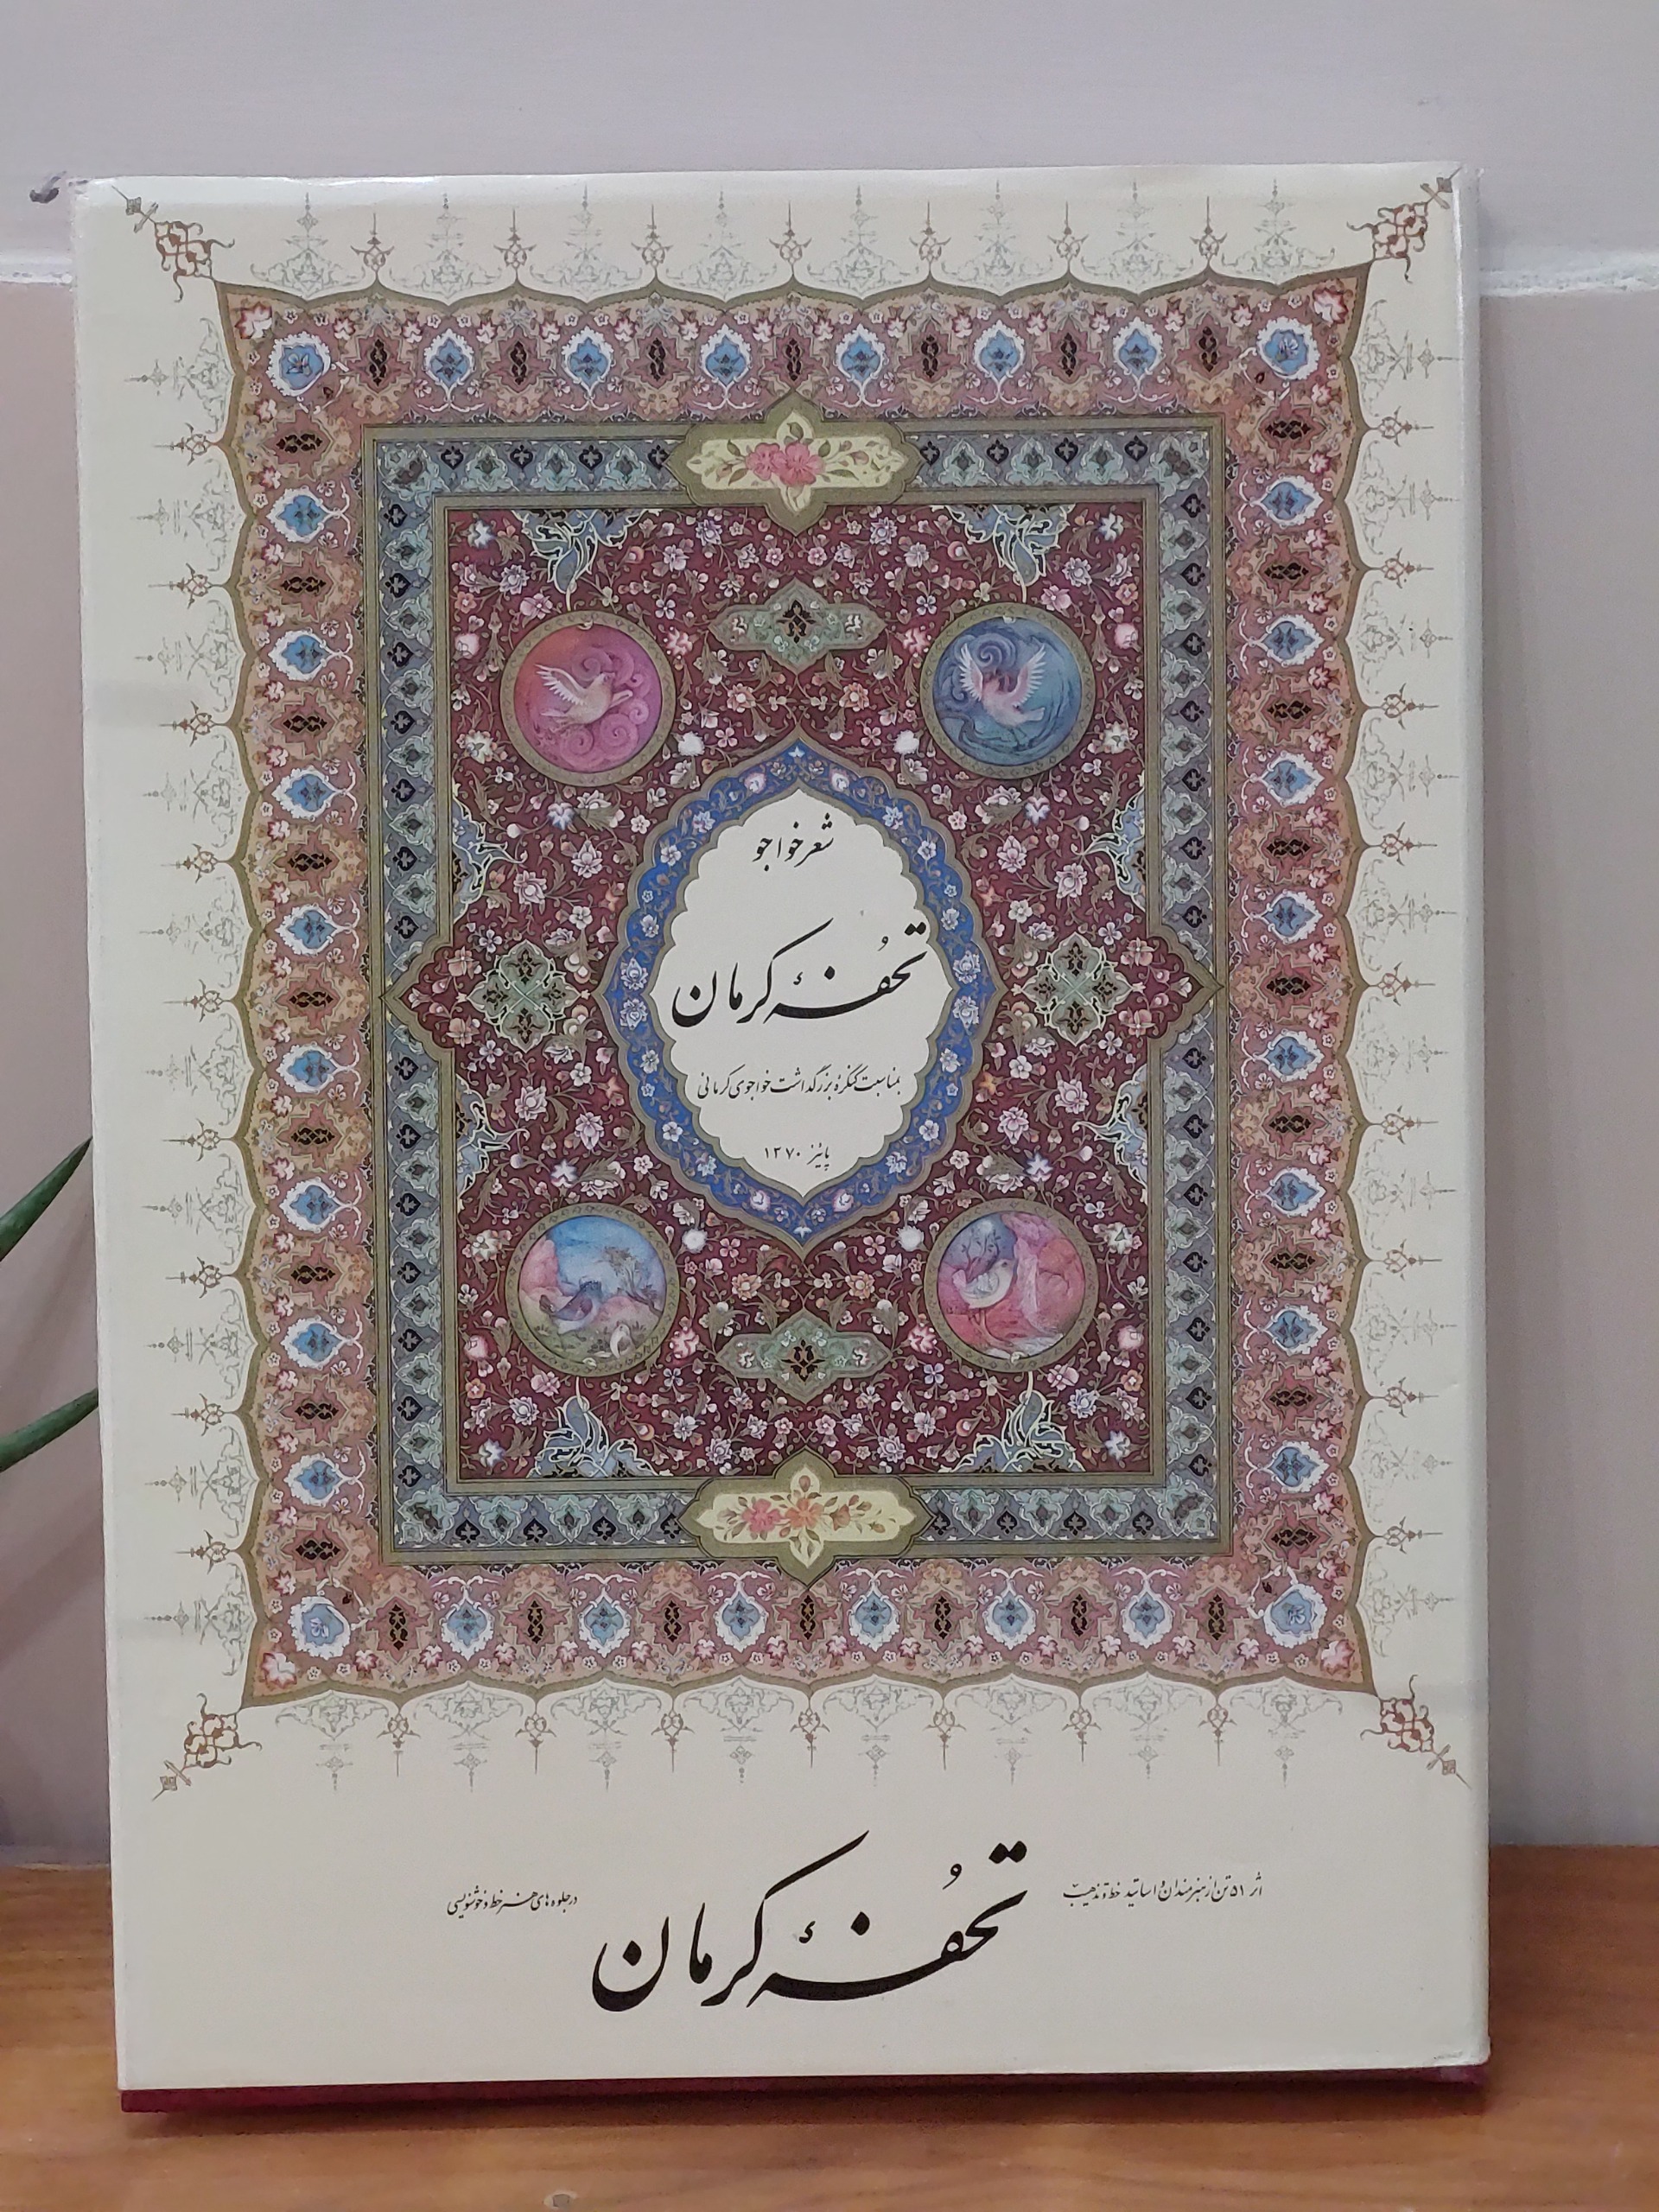 شعر خواجو
تحفهٔ کرمان
بمناسبت کنگرهٔ بزرگداشت خواجوی کرمانی
پائیز ۱۳۷۰
اثر ۵۱ تن از هنرمندان و اساتید خط و تذهیب
تحفهٔ کرمان
در جلوه‌های هنر خط و خوشنویسی